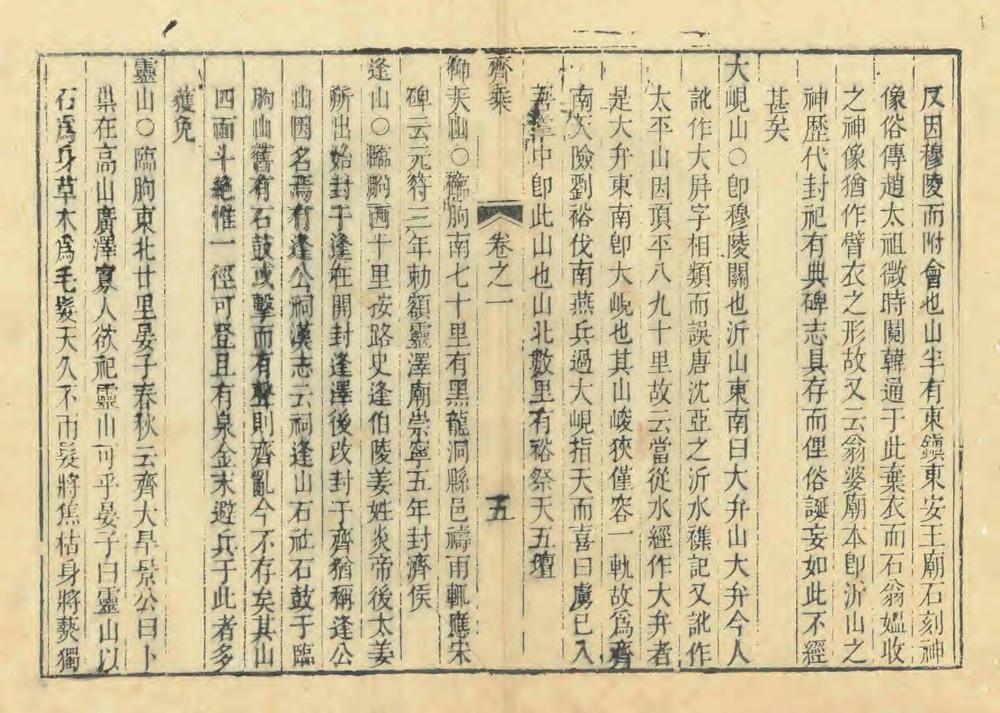 反因穆陵而附會也山半有東鎮東安王廟石刻神
像俗傳趙太祖微時鬩韓通于此棄衣而石翁媼收
之神像猶作臂衣之形故又云翁婆廟本卽沂山之
神歷代封祀有典碑志具存而俚俗誕妄如此不經
甚矣
大峴山○卽穆陵關也沂山東南曰大弁山大弁今人
訛作大屏字相類而誤唐沈亞之沂水襍記又訛作
太平山因頂平八九十里故云當從水經作大弁者
是大弁東南卽大峴也其山峻狹僅容一軌故爲齊
南天險劉裕伐南燕兵過大峴指天而喜曰虜已入
吾掌中卽此山也山北數里有裕祭天五壇
齊乘 卷之一 五
仰天山○臨朐南七十里有黑龍洞縣邑禱雨輒應宋
碑云元符三年勅額靈澤廟崇寧五年封濟侯
逢山○臨朐西十里按路史逢伯陵姜姓炎帝後太姜
所出始封于逢在開封逢澤後改封于齊猶稱逢公
山因名焉有逢公祠漢志云祠逢山石社石鼓于臨
朐山舊有石鼓或擊而有聲則齊亂今不存矣其山
四面斗絕惟一徑可登且有泉金末避兵于此者多
獲免
靈山○臨朐東北廿里晏子春秋云齊大旱景公曰卜
祟在高山廣澤寡人欲祀靈山可乎晏子曰靈山以
石爲身草木爲毛髮天久不雨髮將焦枯身將爇獨